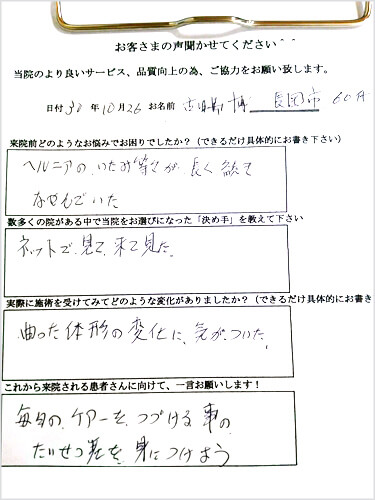 お客さまの声聞かせてください^ ^
当院のより良いサービス、品質向上の為、ご協力をお願い致します。
日付 30 年 10月 26 お名前 博 長岡市 60才
来院前どのようなお悩みでお困りでしたか？（できるだけ具体的にお書き下さい）
ヘルニアの、いたみ等々が、長く続て
なやんでいた
数多くの院がある中で当院をお選びになった「決め手」を教えて下さい
ネットで、見て、来て見た。
実際に施術を受けてみてどのような変化がありましたか？（できるだけ具体的にお書き
曲った体形の変化に、気が、ついた。
これから来院される患者さんに向けて、一言お願いします！
毎日の、ケアーを、つづける事の
たいせつ差を、身につけよう